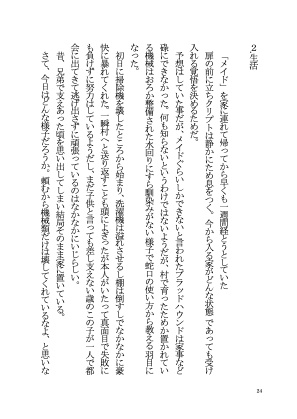 ２生活
「メイド」を家に連れて帰ってから早くも一週間経とうとしていた
扉の前に立ちクリプトは静かにため息をつく、今から入る家がどんな状態であっても受け
入れる覚悟を決めるためだ。
予想はしていた事だが、メイドぐらいしかできないと言われたブラッドハウンドは家事など
碌にできなかった。何も知らないというわけではないようだが、村で育ったためか普段置かれてい
る機械はおろか整備された水回りにすら馴染みがない様子で蛇口の使い方から教える羽目に
なった。
初日に掃除機を壊したところから始まり、洗濯機は溢れさせるし棚は倒すしでなかなかに豪
快に暴れてくれた。一瞬村へと送り返すことも頭によぎったが本人がいたって真面目で失敗に
も負けずに努力はしているようだし、まだ子供と言っても差し支えない歳のこの子が一人で都
会に出てきて逃げ出さずに頑張っているのはなかなかにいじらしい。
昔、兄弟で支えあった頃を思い出してしまい結局そのまま家に置いている。
さて、今日はどんな様子だろうか。頼むから機械類だけは壊してくれているなよ、と思いな
24